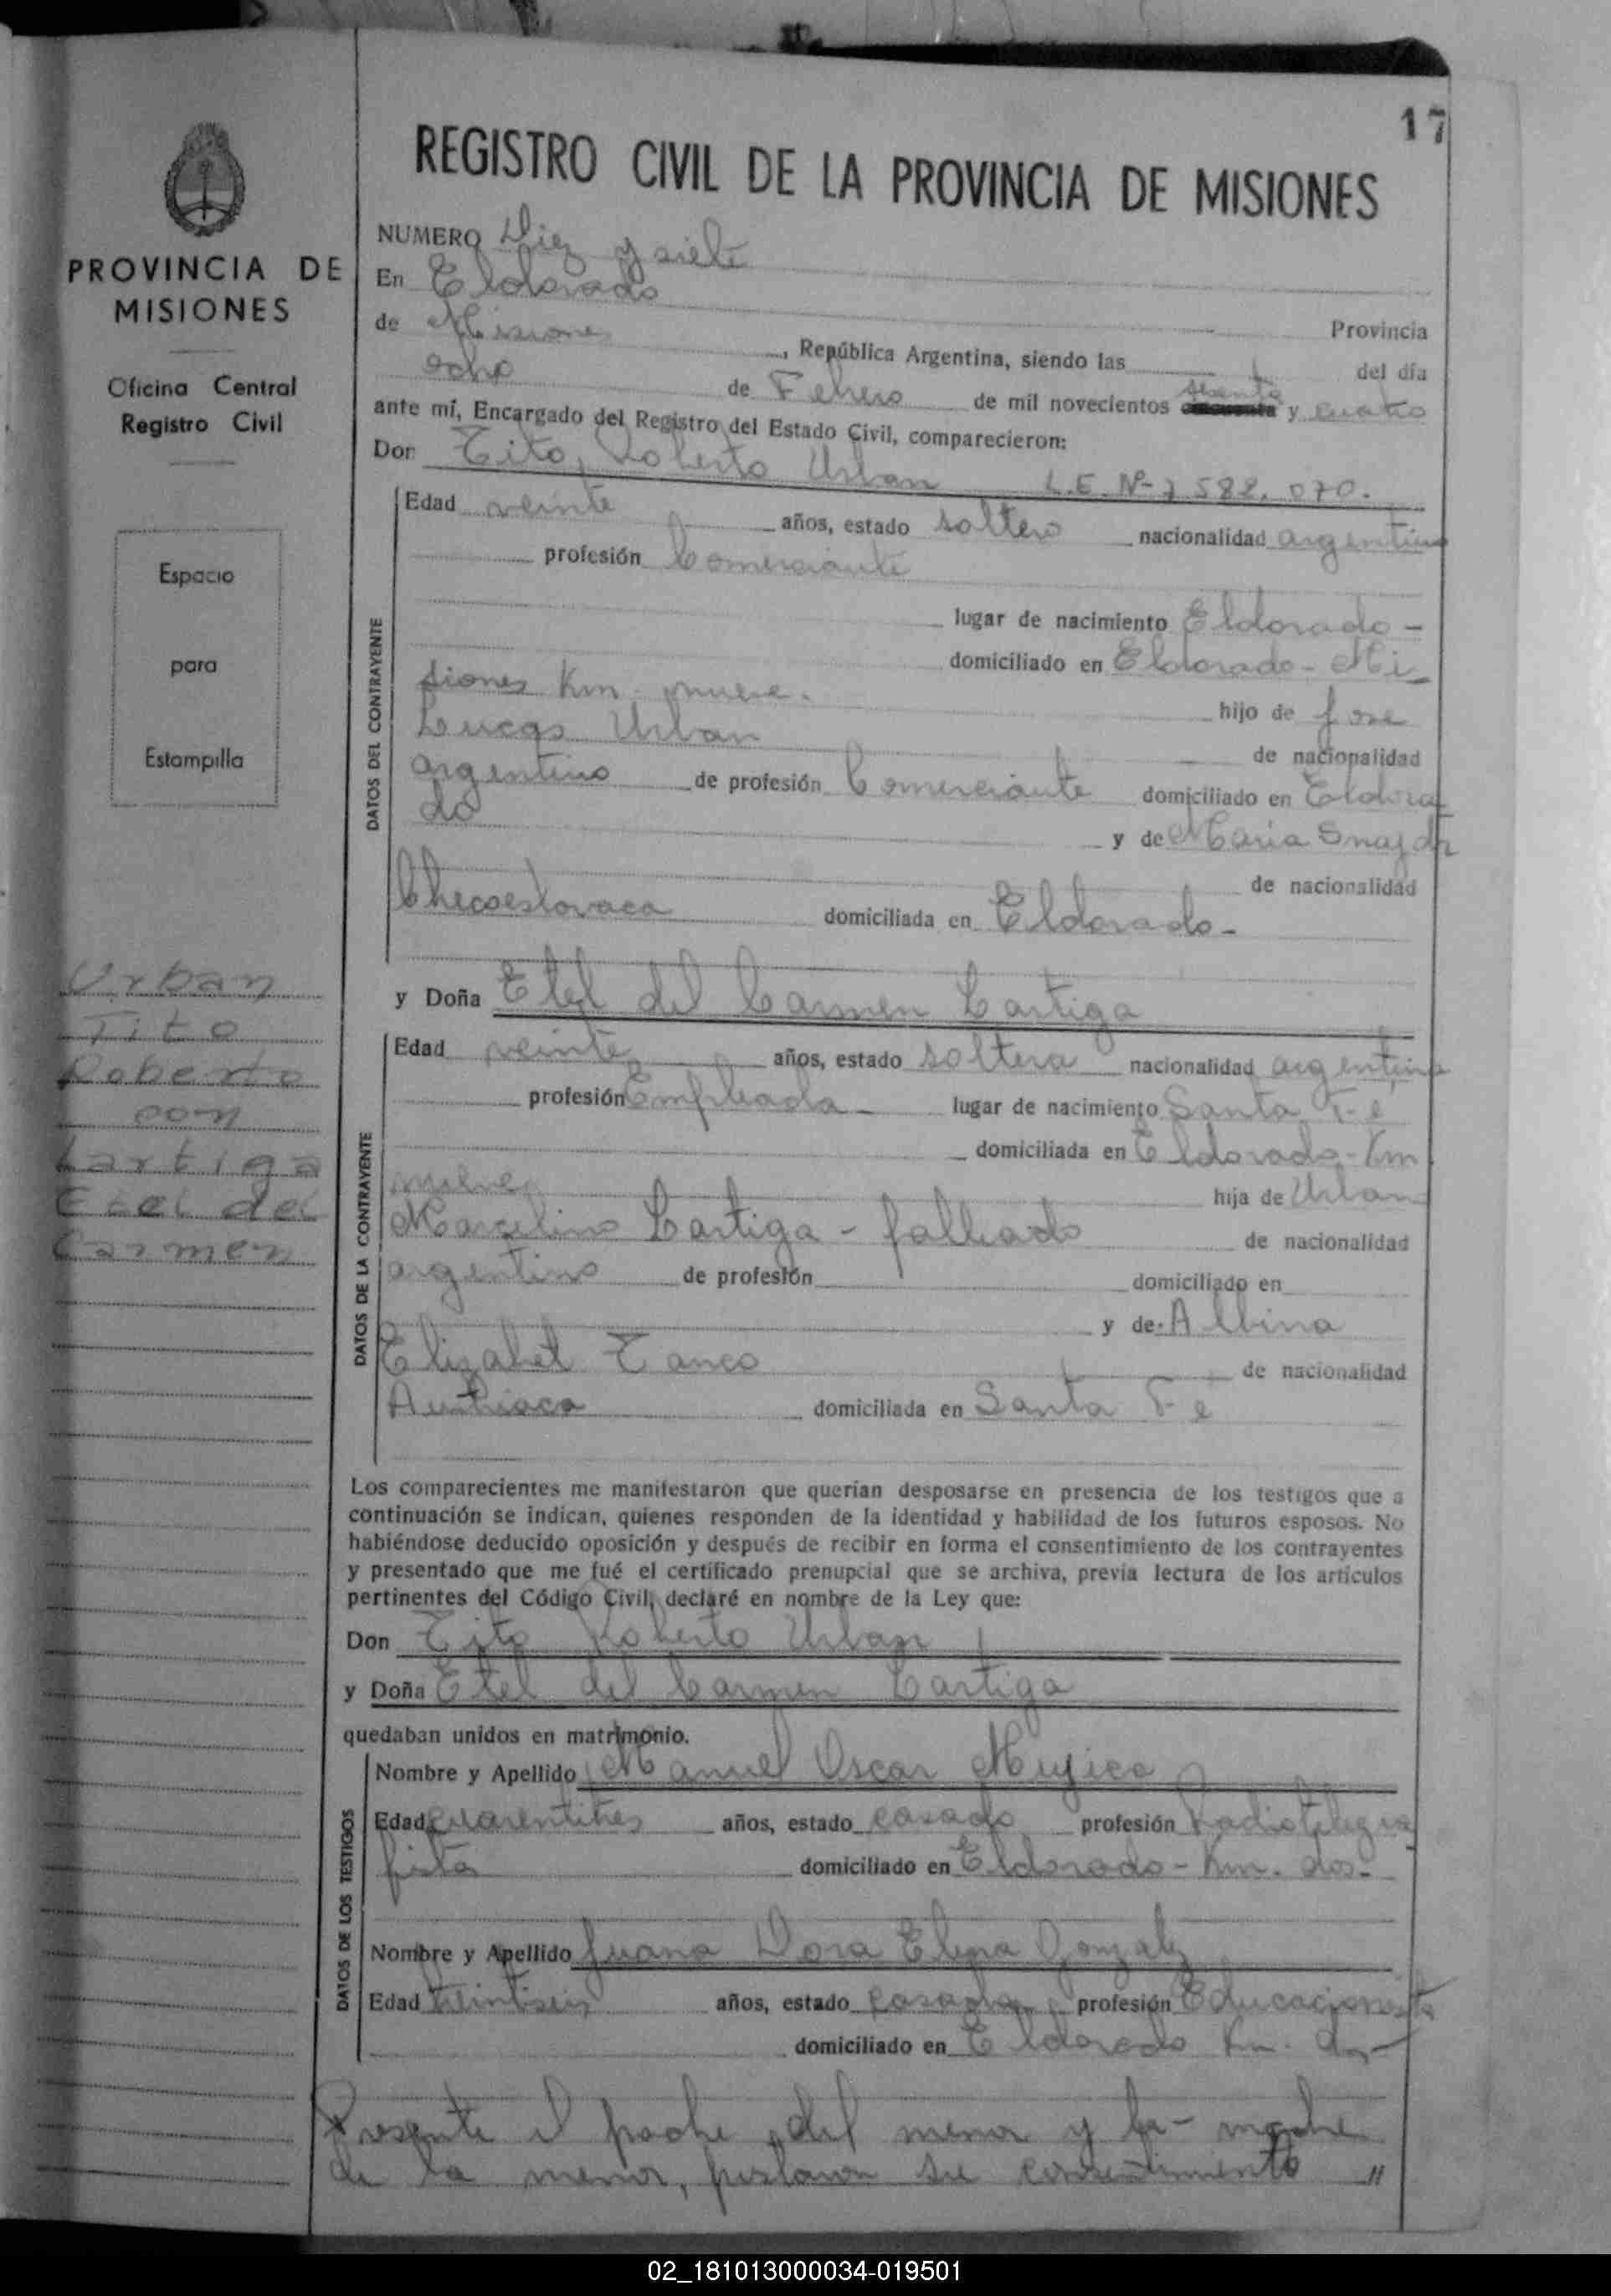 17
REGISTRO CIVIL DE LA PROVINCIA DE MISIONES
PROVINCIA DE
MISIONES
Oficina Central
Registro Civil
Espacio
para
Estampilla
Urban
Tito
Roberto
con
Lartiga
Etel del
Carmen
NUMERO Diez y siete
En Eldorado
de Misiones Provincia
, República Argentina, siendo las del día
ocho de Febrero de mil novecientos sesenta y cuatro
ante mí, Encargado del Registro del Estado Civil, comparecieron:
Don Tito Roberto Urban L.E. Nº 7.582.070.
Edad veinte años, estado soltero nacionalidad argentino
profesión Comerciante
lugar de nacimiento Eldorado -
domiciliado en Eldorado - Mi
siones Km. nueve. hijo de José
Lucas Urban de nacionalidad
argentino de profesión Comerciante domiciliado en Eldora
do y de Maria Snajdr
de nacionalidad
Checoeslovaca domiciliada en Eldorado -
y Doña Etel del Carmen Lartiga
Edad veinte años, estado soltera nacionalidad argentina
profesión Empleada lugar de nacimiento Santa Fé
domiciliada en Eldorado - Km
nueve hija de Urban
Marcelino Lartiga - fallecido de nacionalidad
argentino de profesión domiciliado en
y de Albina
Elizabet Tanco de nacionalidad
Austriaca domiciliada en Santa Fé
DATOS DEL CONTRAYENTE
DATOS DE LA CONTRAYENTE
Los comparecientes me manifestaron que querían desposarse en presencia de los testigos que a
continuación se indican, quienes responden de la identidad y habilidad de los futuros esposos. No
habiéndose deducido oposición y después de recibir en forma el consentimiento de los contrayentes
y presentado que me fué el certificado prenupcial que se archiva, previa lectura de los artículos
pertinentes del Código Civil, declaré en nombre de la Ley que:
Don Tito Roberto Urban
y Doña Etel del Carmen Lartiga
quedaban unidos en matrimonio.
DATOS DE LOS TESTIGOS
Nombre y Apellido Manuel Oscar Mujica
Edad cuarentitres años, estado casado profesión Radiotelegra
fista domiciliado en Eldorado - Km. dos -
Nombre y Apellido Juana Dora Elena Gonzalez
Edad treintiseis años, estado casada profesión Educacionista
domiciliado en Eldorado Km. dos -
Presente el padre del menor y la - madre
de la menor, prestaron su consentimiento //
02_181013000034-019501